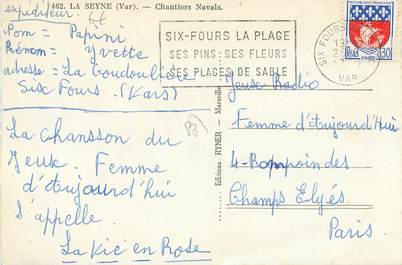 462. LA SEYNE (Var). — Chantiers Navals.
expéditeur
Nom = Papini
Prénom = Yvette
adresse = La Coudoulière
Six Fours. (Vars)
SIX-FOURS LA PLAGE
SES PINS - SES FLEURS
SES PLAGES DE SABLE
SIX FOURS
VAR
0,30
La chanson du
Jeux. Femme
d'étujourd'hui
s'appelle
La Vie en Rose
83
Editions RYNER - Marseille
Jeux Radio
Femme d'étujourd'hui
4- Rompoindes
Champs Elysés
Paris.